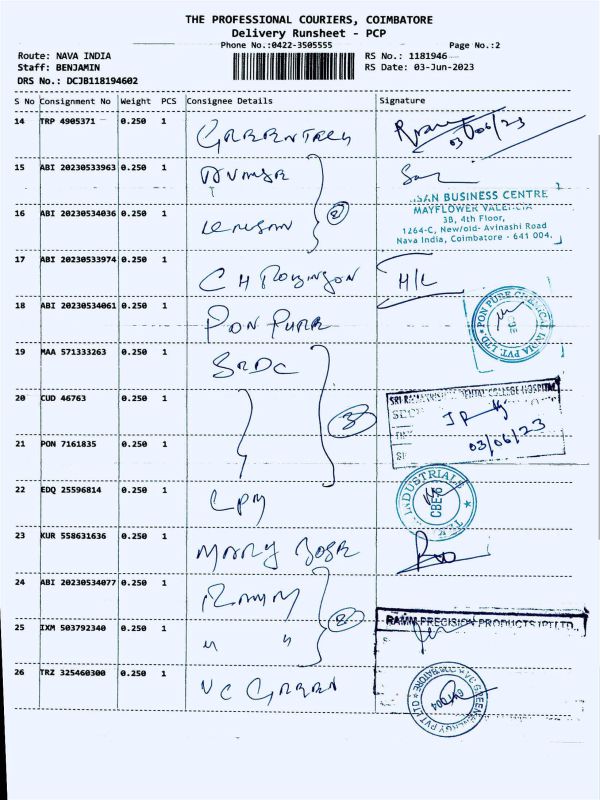 THE PROFESSIONAL COURIERS, COIMBATORE
Delivery Runsheet - PCP
Phone No.:0422-3505555 Page No.:2
Route: NAVA INDIA RS No.: 1181946
Staff: BENJAMIN RS Date: 03-Jun-2023
DRS No.: DCJB118194602
S No Consignment No Weight PCS Consignee Details Signature
14 TRP 4905371 0.250 1 03/06/23
15 ABI 20230533963 0.250 1
BUSINESS CENTRE
MAYFLOWER VALENCIA
16 ABI 20230534036 0.250 1 2
3B, 4th Floor,
1264-C, New/old- Avinashi Road
Nava India, Coimbatore - 641 004.
17 ABI 20230533974 0.250 1 CH Robinson H/L
18 ABI 20230534061 0.250 1 PON PURE
PON PURE CHEMICAL INDIA PVT. LTD.
CBE
19 MAA 571333263 0.250 1 SRDC
20 CUD 46763 0.250 1 3
DENTAL COLLEGE HOSPITAL
21 PON 7161835 0.250 1 03/06/23
22 EDQ 25596814 0.250 1 LPM
INDUSTRIALS
23 KUR 558631636 0.250 1
24 ABI 20230534077 0.250 1 2
25 IXM 503792340 0.250 1 " "
RAMM PRECISION PRODUCTS (P) LTD.
26 TRZ 325460300 0.250 1 VC GREEN
VC GREEN ENERGY PVT LTD